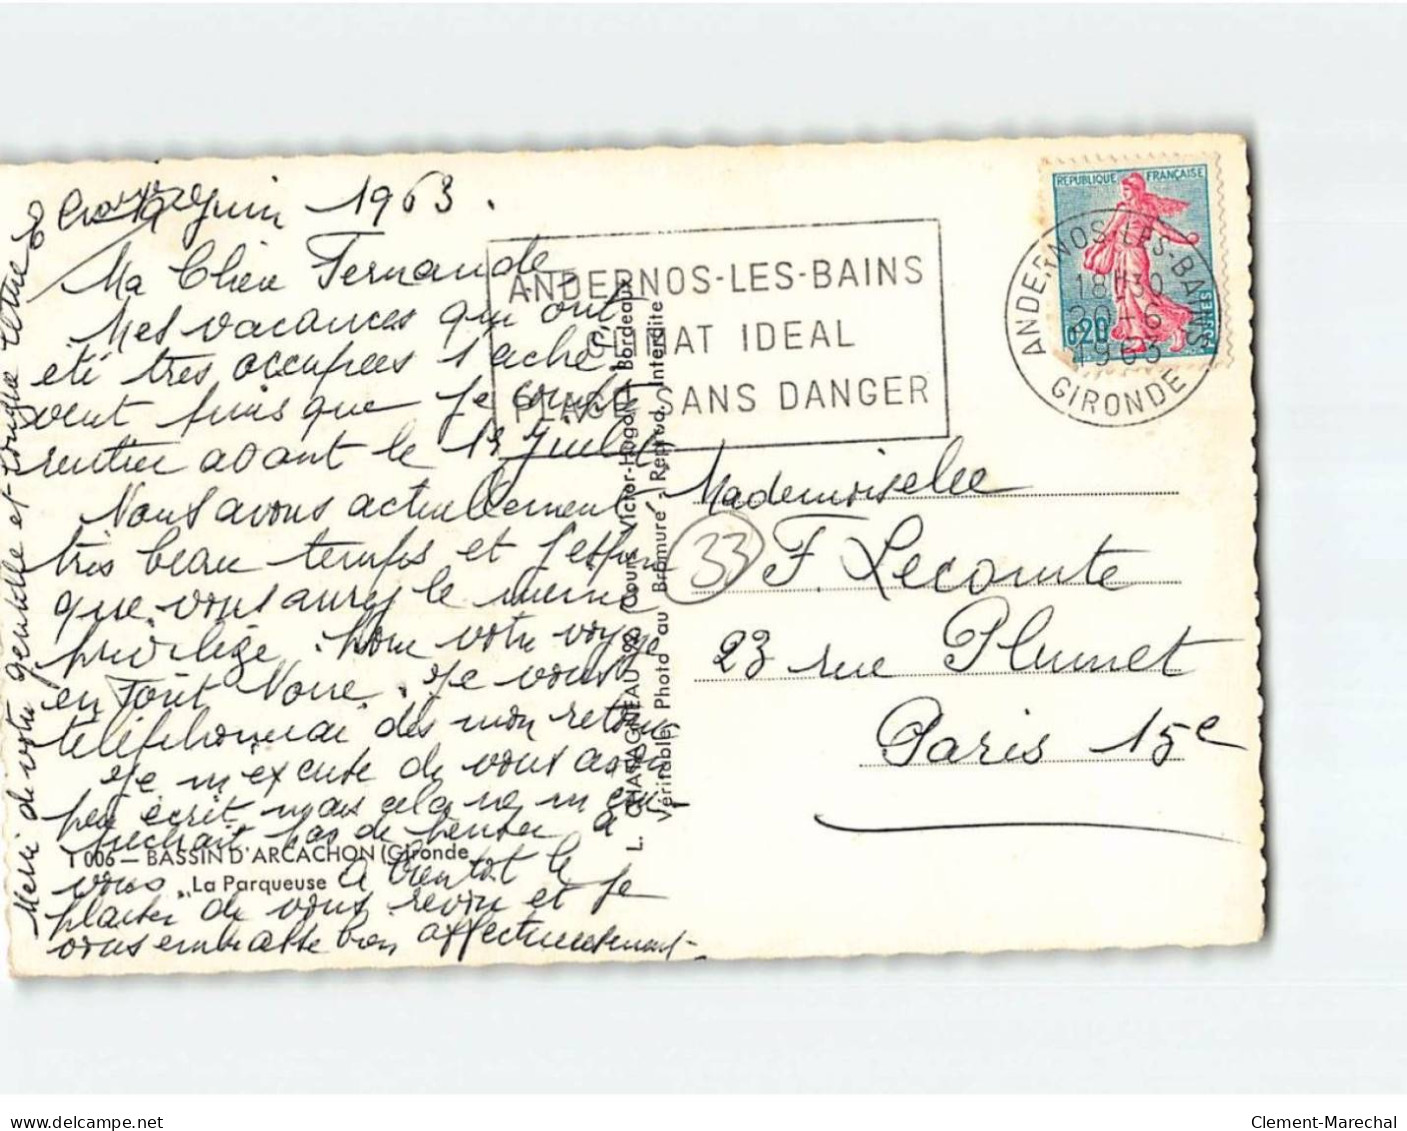 19 Juin 1963.
Ma Chère Fernande
Mes vacances qui ont
été très occupées s'achè-
vent puis que je compte
rentrer avant le 15 Juillet
Nous avons actuellement
très beau temps et j'espère
que vous aurez le même
privilège pour votre voyage
en Foret Noire. Je vous
téléphonerai dès mon retour
Je m'excuse de vous avoir
peu écrit mais cela ne m'em-
pechait pas de penser à
vous. A bientot le
plaisir de vous revoir et je
vous embrasse bien affectueusement
Merci de votre gentille et longue lettre
1 006 — BASSIN D'ARCACHON (Gironde
La Parqueuse
L. CHATAGNEAU, Cours Victor-Hugo, Bordeaux
Véritable Photo au Bromure - Reprod. Interdite
ANDERNOS-LES-BAINS
CLIMAT IDEAL
PLAGE SANS DANGER
REPUBLIQUE FRANÇAISE
0,20
POSTES
ANDERNOS-LES-BAINS
18H30
20-6
1963
GIRONDE
Mademoiselle
33
F. Lecomte
23 rue Plumet
Paris 15e
www.delcampe.net
Clement-Marechal